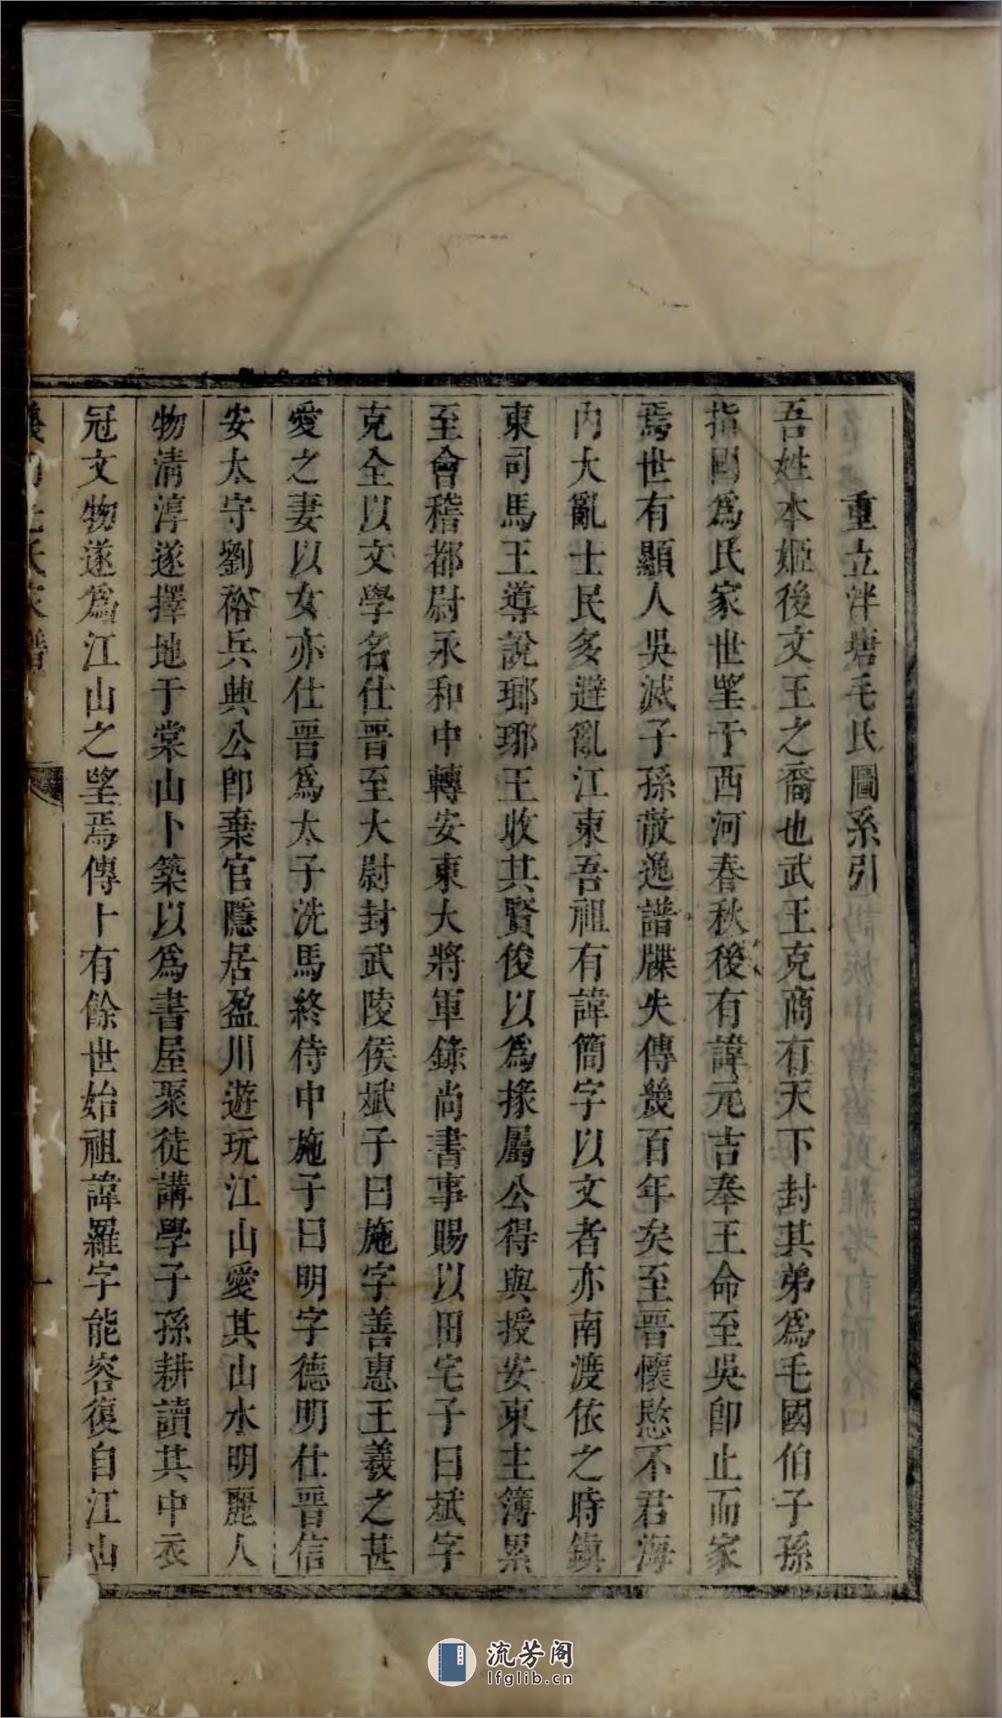 重立泮塘毛氏圖系引
吾姓本姬後文王之裔也武王克商有天下封其弟爲毛國伯子孫
指國爲氏家世望于西河春秋後有諱元吉奉王命至吳卽止而家
焉世有顯人吳滅子孫散逸譜牒失傳幾百年矣至晉懷愍不君海
內大亂士民多避亂江東吾祖有諱簡字以文者亦南渡依之時鎮
東司馬王導說瑯琊王收其賢俊以爲掾屬公得與授安東主簿累
至會稽都尉永和中轉安東大將軍錄尚書事賜以田宅子曰斌字
克全以文學名仕晉至大尉封武陵侯斌子曰施字善惠王羲之甚
愛之妻以女亦仕晉爲太子洗馬終侍中施子曰明字德明仕晉信
安太守劉裕兵興公卽棄官隱居盈川遊玩江山愛其山水明麗人
物清淳遂擇地于棠山卜築以爲書屋聚徒講學子孫耕讀其中衣
冠文物遂爲江山之望焉傳十有餘世始祖諱羅字能容復自江山
氏家譜
一
流芳阁
lfglib.cn